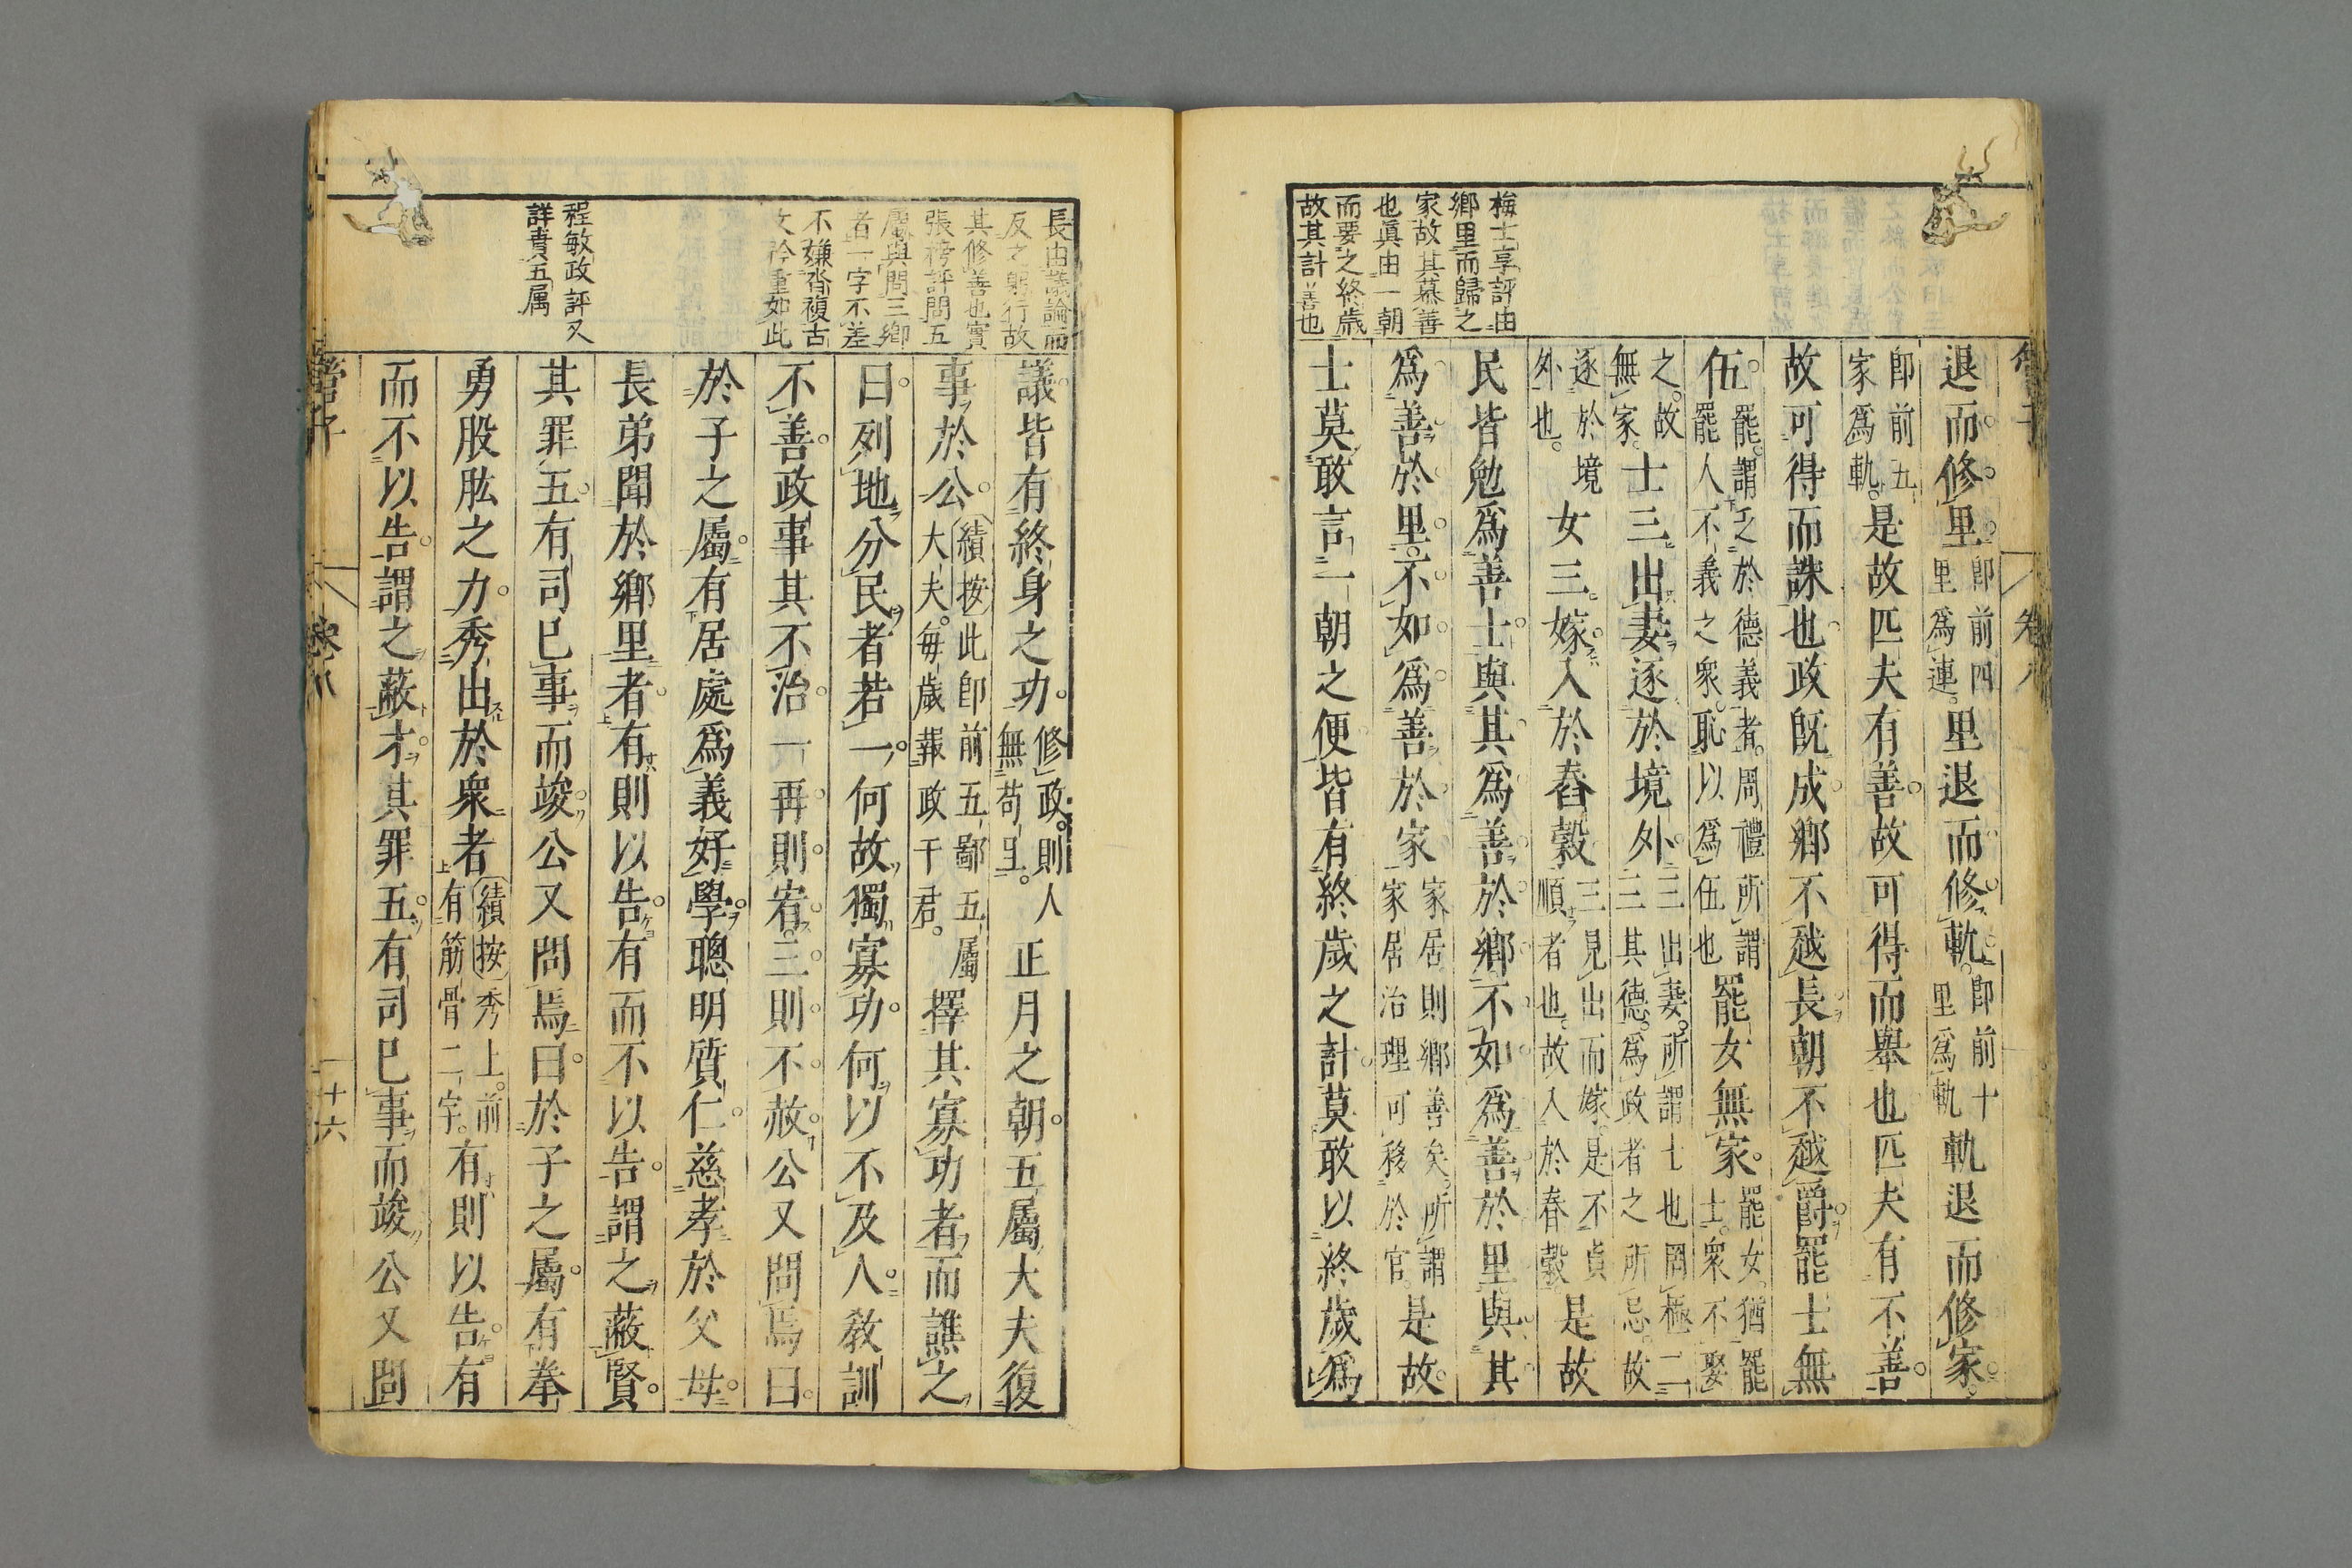 管子
卷八
梅士享評由
鄉里而歸之
家故其慕善
也眞由一朝
而要之終歲
故其計善也
退而修里即前四里爲連里退而修軌即前十里爲軌軌退而修家
即前五家爲軌是故匹夫有善故可得而舉也匹夫有不善
故可得而誅也政旣成鄉不越長朝不越爵罷士無
伍罷謂乏於德義者周禮所謂罷人不義之衆恥以爲伍也罷女無家罷女猶罷士衆不娶
之故無家士三出妻逐於境外三出妻所謂士也罔極二三其德爲政者之所忌故
逐於境外也女三嫁入於舂穀三見出而嫁是不貞順者也故入於舂穀是故
民皆勉爲善士與其爲善於鄉不如爲善於里與其
爲善於里不如爲善於家家居則鄉善矣所謂家居治理可移於官是故
士莫敢言一朝之便皆有終歲之計莫敢以終歲爲
長由議論而
反之朝行故
其修善也實
張榜評問五
屬與問三鄉
者一字不差
不嫌沓複古
文矜重如此
程敏政評又
詳責五属
議皆有終身之功修政則人無苟且正月之朝五屬大夫復
事於公績按此即前五鄙五屬大夫每歲報政于君擇其寡功者而譙之
曰列地分民者若一何故獨寡功何以不及人敎訓
不善政事其不治一再則宥三則不赦公又問焉曰
於子之屬有居處爲義好學聰明質仁慈孝於父母
長弟聞於鄉里者有則以告有而不以告謂之蔽賢
其罪五有司已事而竣公又問焉曰於子之屬有拳
勇股肱之力秀出於衆者績按秀上前有筋骨二字有則以告有
而不以告謂之蔽才其罪五有司已事而竣公又問
管子
卷八
十六